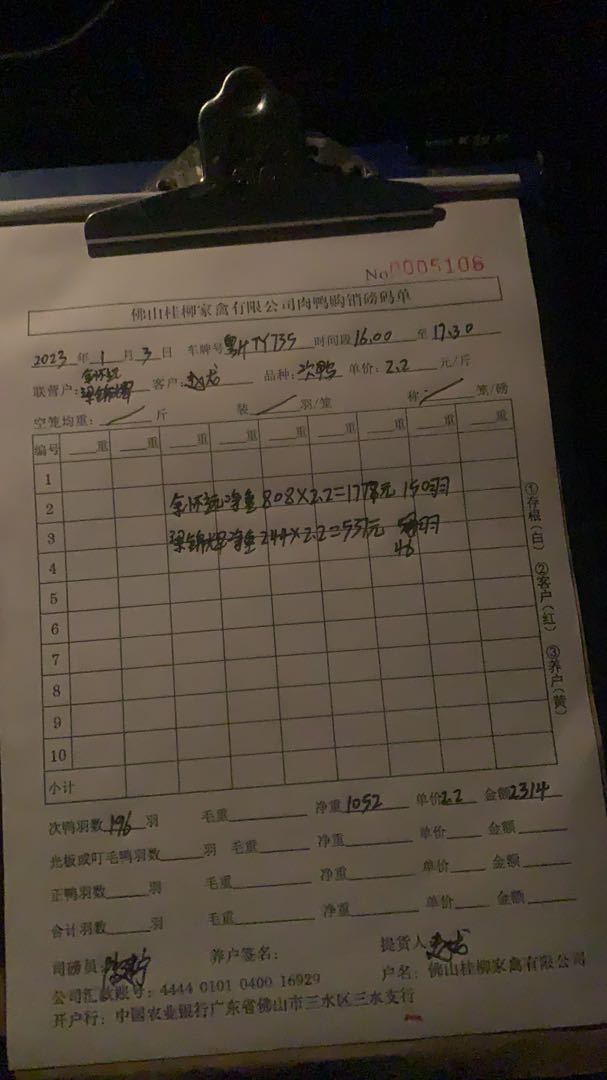 No 0005106
佛山桂柳家禽有限公司肉鸭购销磅码单
2023年1月3日 车牌号粤HTY735 时间段16.00至17.30
联营户: 客户: 品种:次鸭 单价:2.2元/斤
空笼均重:／斤 装／羽/笼 称／笼/磅
编号 重 重 重 重 重 重 重 重 重
1
2 余怀远净重808×2.2=1778元 150羽
3 梁锦辉净重244×2.2=537元 羽
46
4
5
6
7
8
9
10
小计
①存根(白) ②客户(红) ③养户(黄)
次鸭羽数196羽 毛重 净重1052 单价2.2 金额2314
光板或叮毛鸭羽数 羽 毛重 净重 单价 金额
正鸭羽数 羽 毛重 净重 单价 金额
合计羽数 羽 毛重 净重 单价 金额
司磅员: 养户签名: 提货人
公司汇款账号: 4444 0101 0400 16929 户名: 佛山桂柳家禽有限公司
开户行: 中国农业银行广东省佛山市三水区三水支行